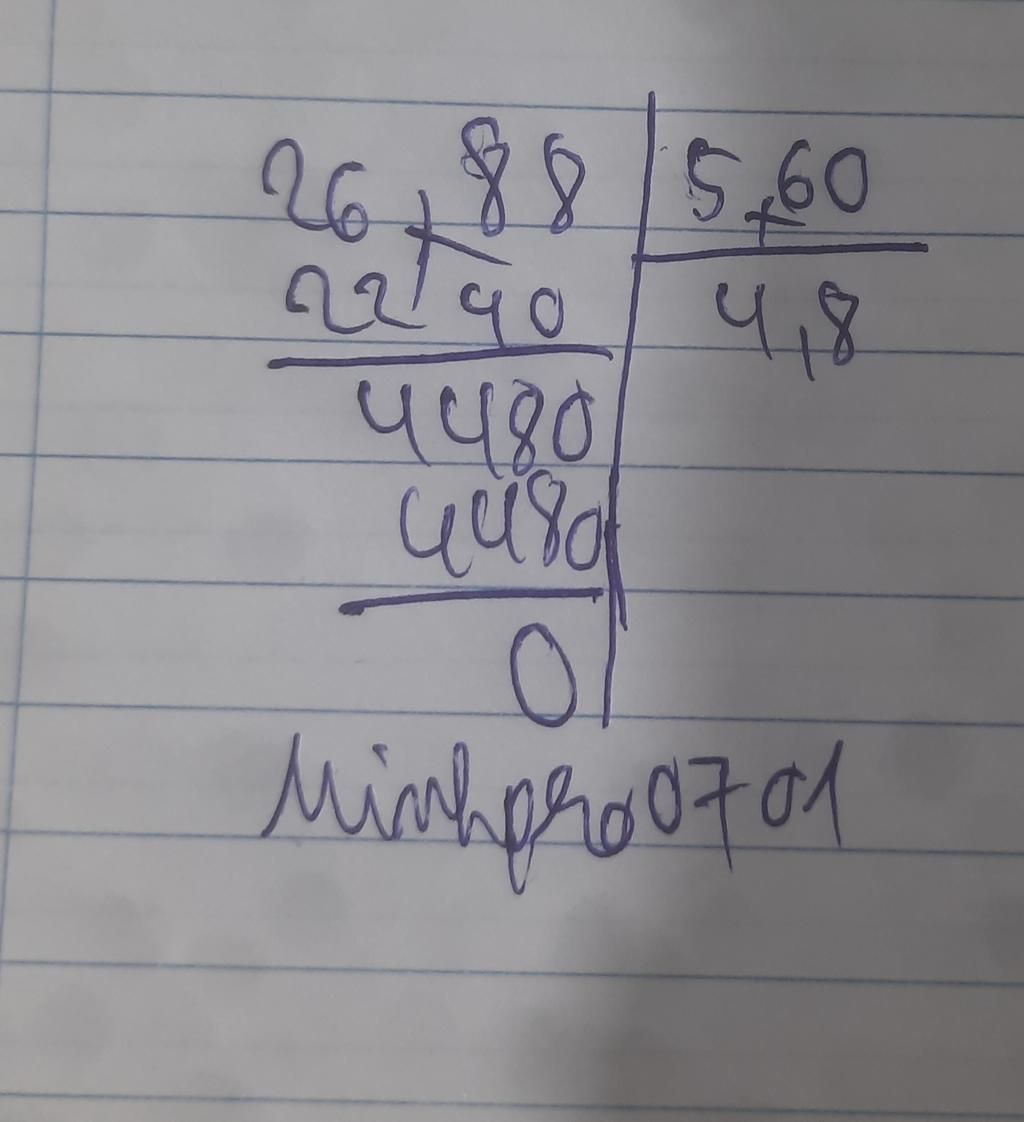 26,88 5,60
2240 4,8
4480
4480
0
Minhpro0701